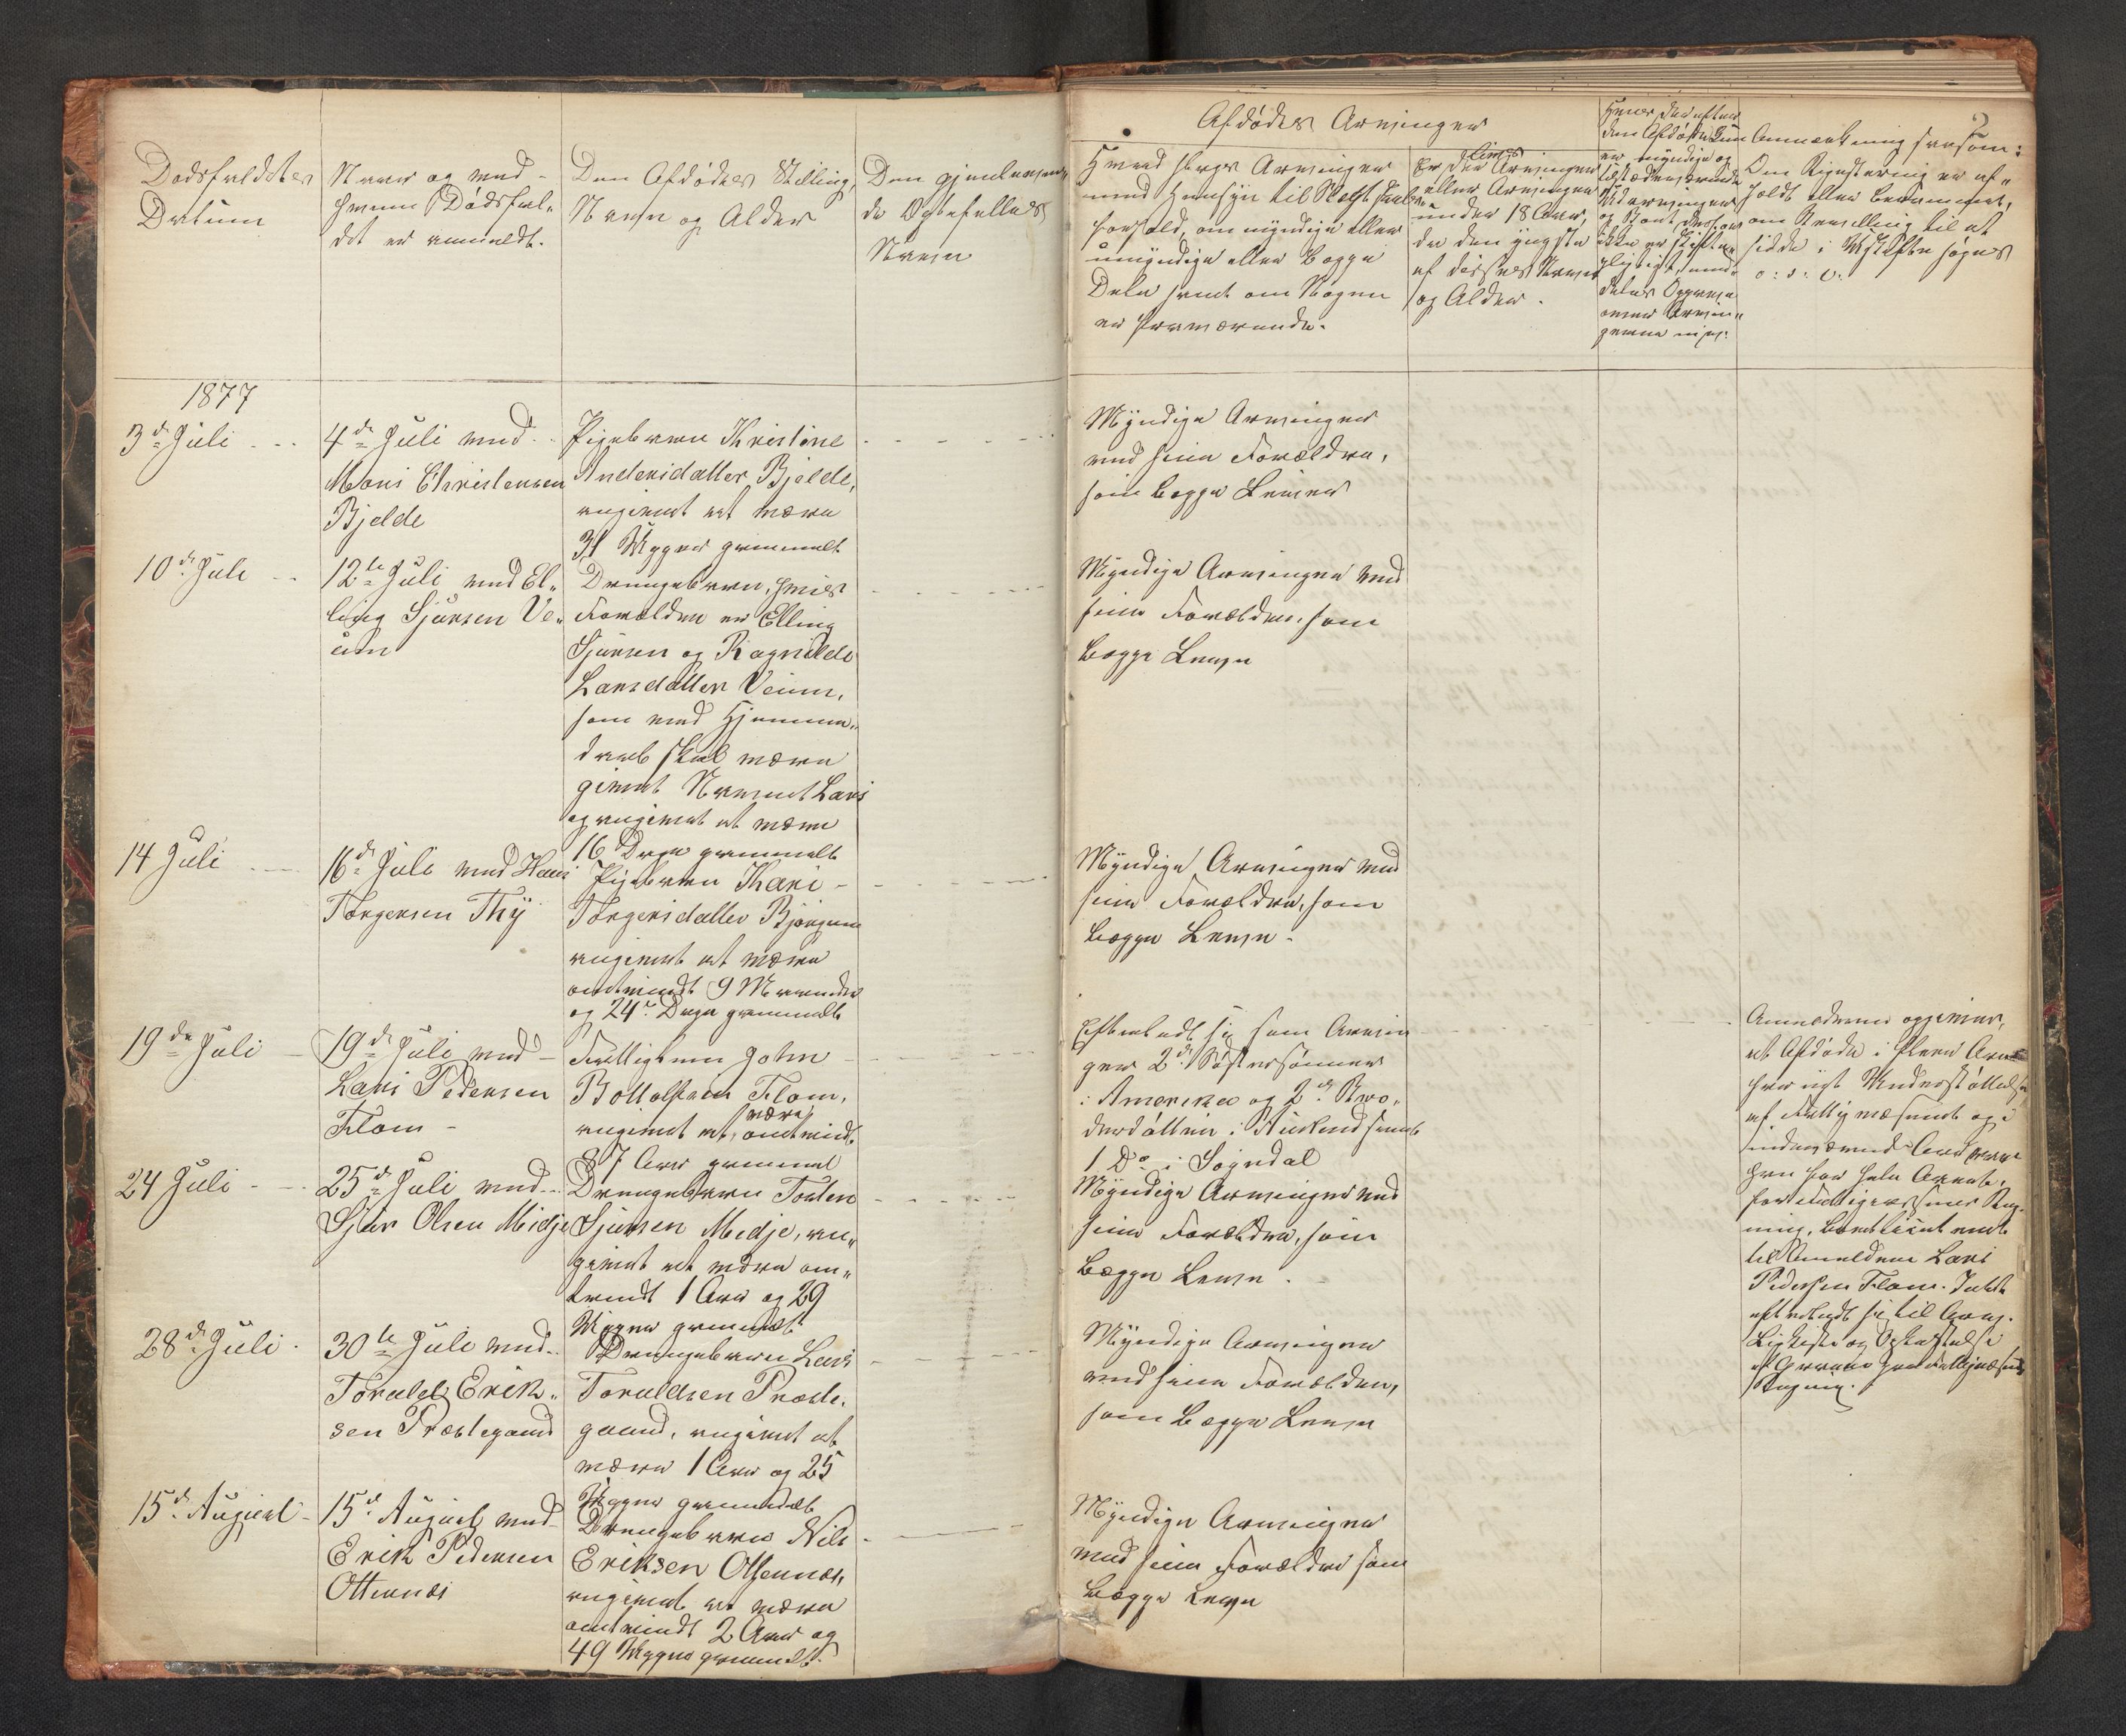 Dødsfaldets
Datum
Naar og med
hvem Dødsfal„
det er anmeldt.
Den Afdødes Stilling,
Navn og Alder
Den gjenleven„
de Ægtefælles
Navn
Afdødes Arvinger
2
Hvad slags Arvinger
med Hensyn til Slægtskabs„
forhold, om myndige eller
umyndige eller begge
Dele samt om Nogen
er fraværende.
Er der Livs
Arvinger
eller Arvinger
under 18 Aar,
da den yngste
af disses Navn
og Alder.
Hvis der efter
den Afdøde kun
er myndige og
tilstedeværende
Udarvinger
og Boet
ikke er skifte„
pligtigt, med„
deles Opgave
over Arvin„
gerne
Anmærkning saasom:
Om Registrering er af„
holdt eller berammet,
om Bevilling til at
sidde i Uskifte søges
o: s: v:
1877
3d Juli
4de Juli med
Mons Christensen
Bjelde
Pigebarn Kristine
Andersdatter Bjelde,
angivet at være
31 Uger gammelt
Myndige Arvinger
ved sine Forældre,
som begge Lever
10de Juli
12te Juli med El„
ling Sjursen Ve„
um
Drengebarn, hvis
Forældre er Elling
Sjursen og Ragnilde
Larsdatter Veum,
som ved Hjemme„
daab skal være
givet Navnet Lars
og angivet at være
16 Dage gammelt
Myndige Arvinger ved
sine Forældre, som
begge Leve
14 Juli
16de Juli med Hans
Torgersen Thÿ
Pigebarn Kari
Torgersdatter Bjørgum
angivet at være
omtrendt 9 Maaneder
og 24 Dage gammelt
Myndige Arvinger ved
sine Forældre, som
begge Leve.
19de Juli
19de Juli med
Lars Pedersen
Flom
Fattiglem John
Bottolfsen Flom,
angivet at være omtrendt
87 Aar gammel
Efterladt sig som Arvin
ger 2de Søstersønner
i Amerika og 2de Bro„
derdøttre i Aurland samt
1 Do i Sogndal
Anmelderen opgiver,
at Afdøde i flere Aar
har nyt Understøttelse
af Fattigvæsenet og i
indeværende Aar var
han for hele Aaret,
for Fattigvæsenets Reg„
ning, bortliciteret
til Anmelderen Lars
Pedersen Flom. Intet
efterladt sig til Arv.
Ligkiste og
af Graven paa Fattigvæsenets
Regning.
24 Juli
25de Juli med
Sjur Olsen Midje
Drengebarn Torsten
Sjursen Midje, an„
givet at være om„
trendt 1 Aar og 29
Uger gammelt
Myndige Arvinger ved
sine Forældre, som
begge Leve.
28de Juli
30te Juli med
Torvald Erik„
sen Prestegaard
Drengebarn Lars
Torvaldsen Preste„
gaard, angivet at
være 1 Aar og 25
Uger gammelt
Myndige Arvinger
ved sine Forældre,
som begge Leve
15de August
15de August med
Erik Pedersen
Otternæs
Drengebarn Nils
Eriksen Otternæs,
angivet at være
omtrendt 2 Aar og
49 Uger gammelt.
Myndige Arvinger
ved sine Forældre som
begge Leve